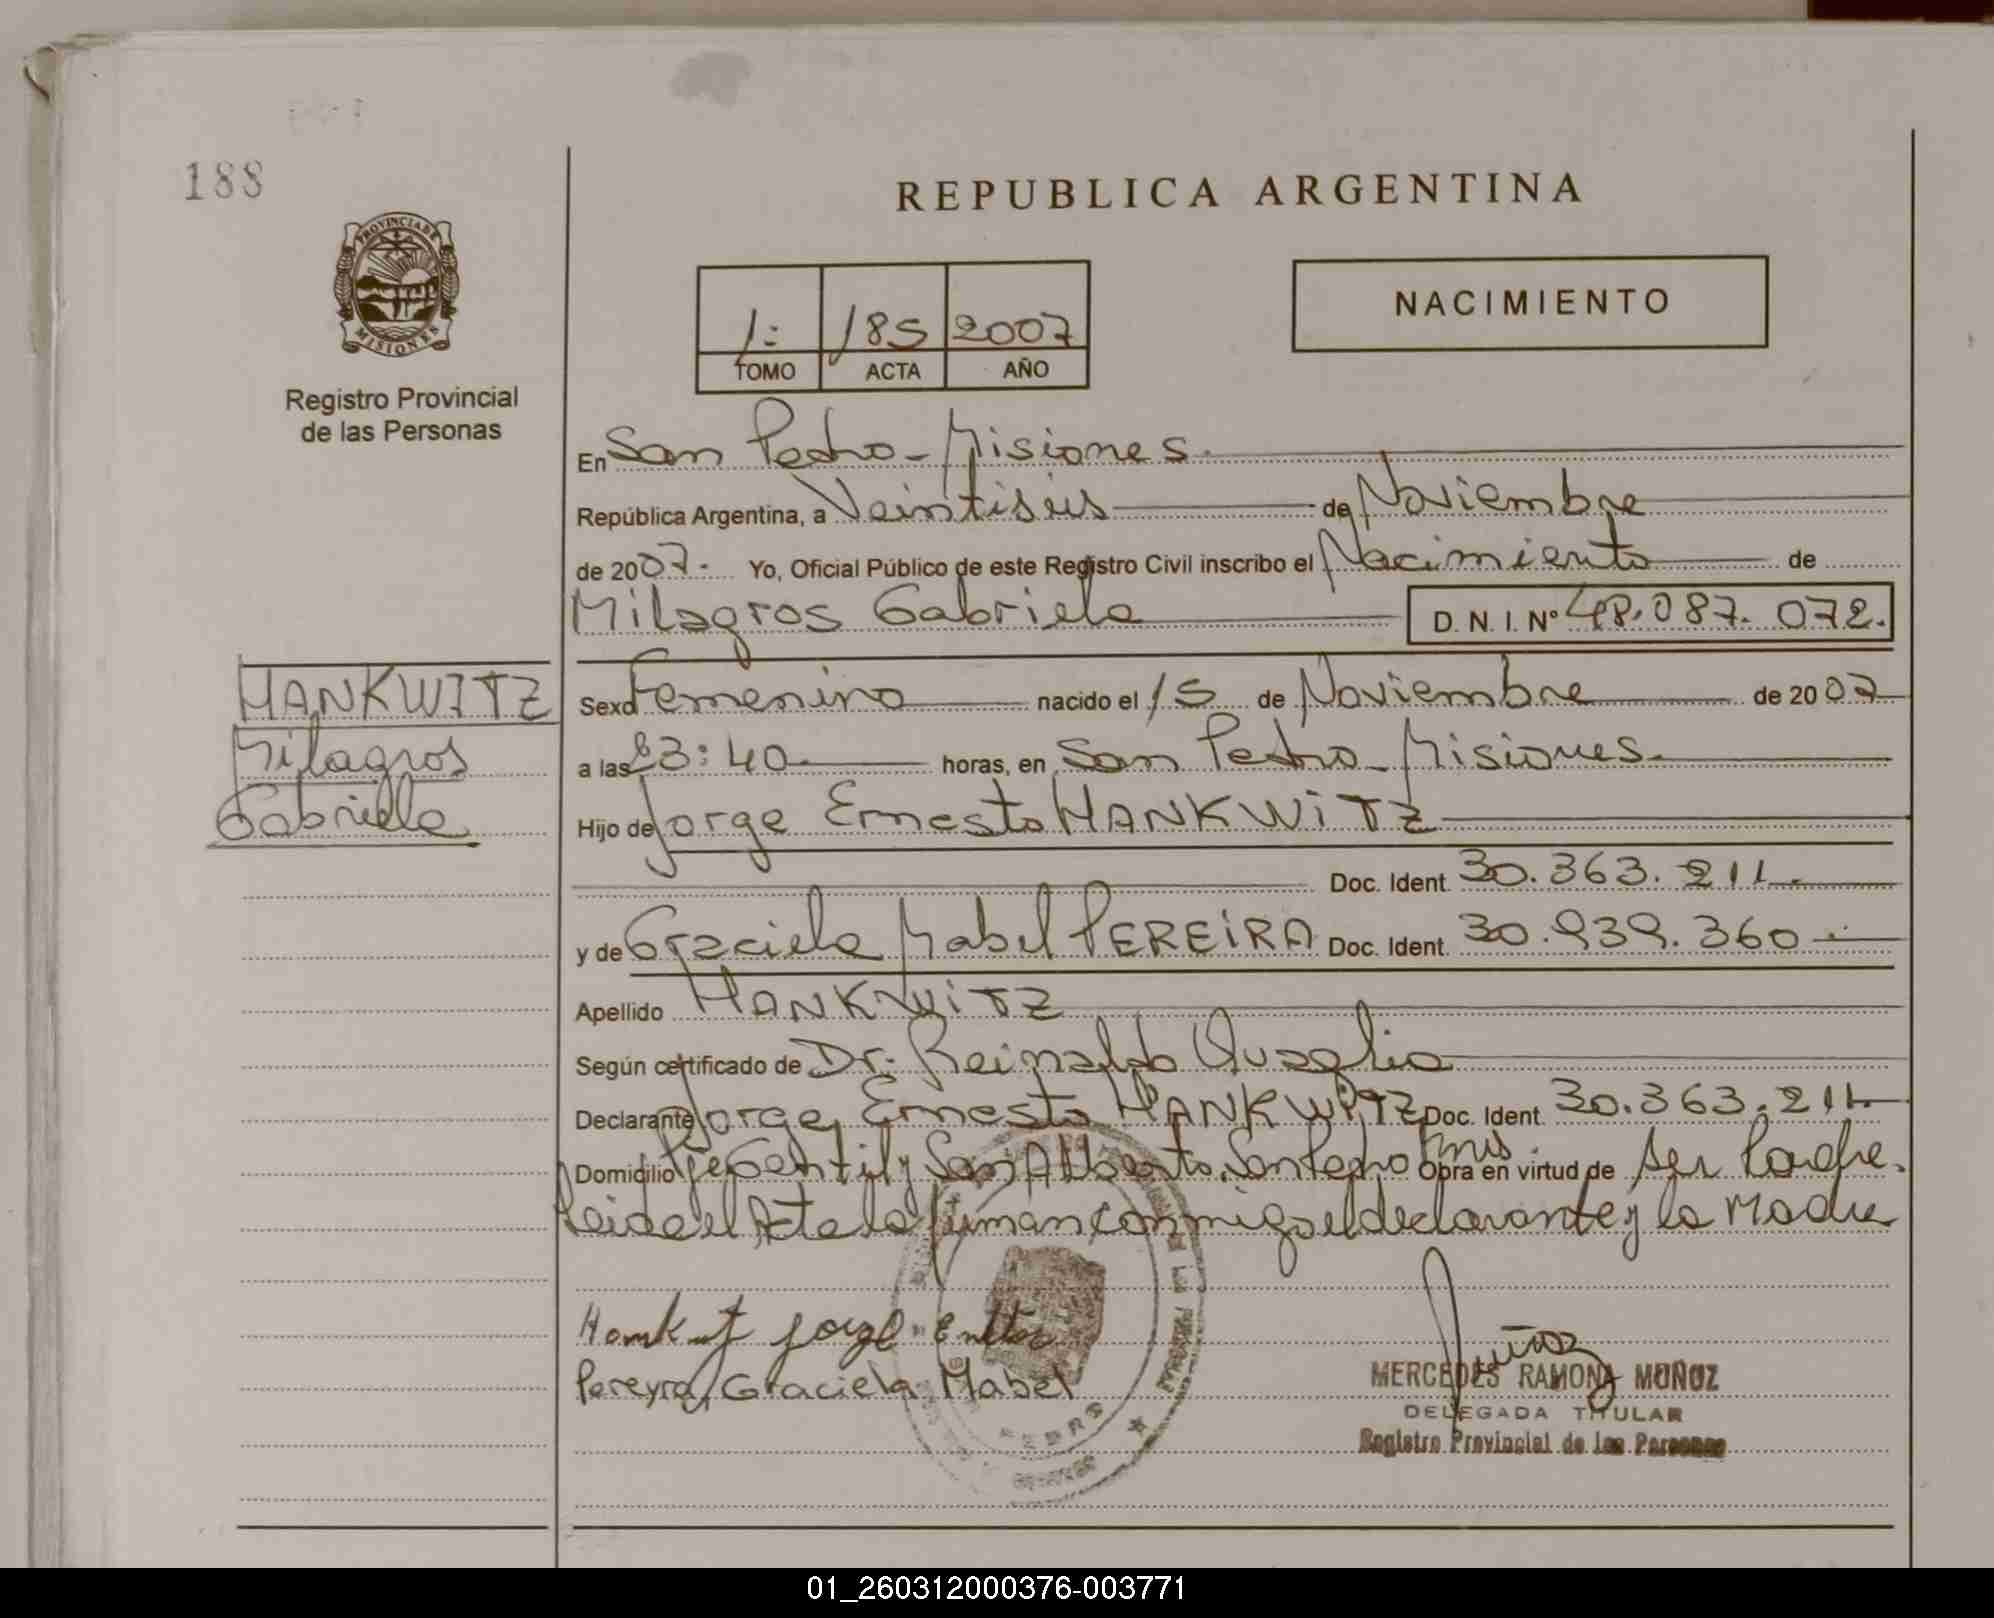 188
PROVINCIA DE
MISIONES
Registro Provincial
de las Personas
REPUBLICA ARGENTINA
1: 185 2007
TOMO ACTA AÑO
NACIMIENTO
En San Pedro - Misiones.
República Argentina, a Veintiseis de Noviembre
de 2007. Yo, Oficial Público de este Registro Civil inscribo el Nacimiento de
Milagros Gabriela D. N. I. Nº 48.087.072.
HANKWITZ
Milagros
Gabriela
Sexo Femenino nacido el 15 de Noviembre de 2007
a las 23:40 horas, en San Pedro - Misiones.
Hijo de Jorge Ernesto HANKWITZ
Doc. Ident. 30.363.211.
y de Graciela Mabel PEREIRA Doc. Ident. 30.939.360
Apellido HANKWITZ
Según certificado de Dr. Reinaldo
Declarante Jorge Ernesto HANKWITZ Doc. Ident. 30.363.211.
Domicilio Gentil y San Alberto. San Pedro Mnes. Obra en virtud de ser Padre.
Leida el Acta la firman conmigo el declarante y la Madre
Jorge
Pereyra, Graciela Mabel
Muñoz
MERCEDES RAMONA MUÑOZ
DELEGADA TITULAR
Registro Provincial de las Personas
PEDRO
01_260312000376-003771